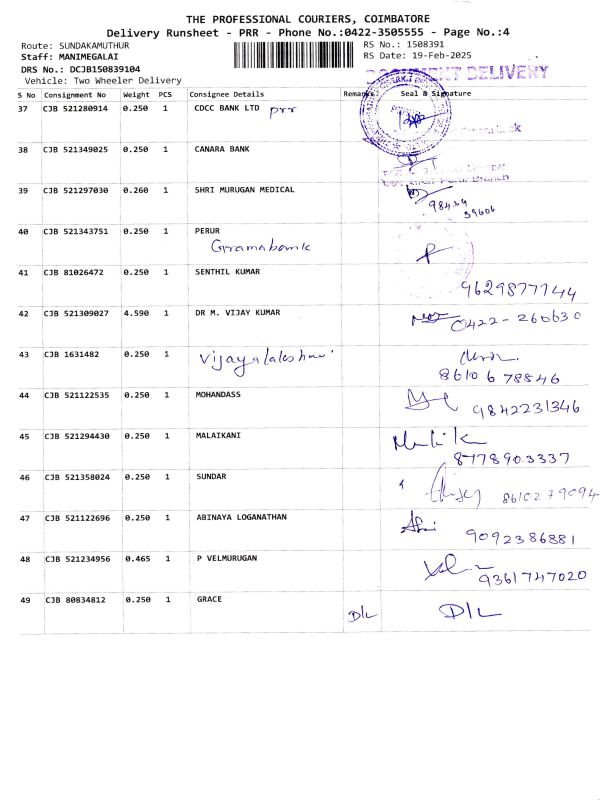 THE PROFESSIONAL COURIERS, COIMBATORE
Delivery Runsheet - PRR - Phone No.:0422-3505555 - Page No.:4
Route: SUNDAKAMUTHUR RS No.: 1508391
Staff: MANIMEGALAI RS Date: 19-Feb-2025
DRS No.: DCJB150839104
Vehicle: Two Wheeler Delivery
DELIVERY
S No Consignment No Weight PCS Consignee Details Remarks Seal & Signature
37 CJB 521280914 0.250 1 CDCC BANK LTD prr
38 CJB 521349025 0.250 1 CANARA BANK
39 CJB 521297030 0.260 1 SHRI MURUGAN MEDICAL 98434
39606
40 CJB 521343751 0.250 1 PERUR
Gramabank
41 CJB 81026472 0.250 1 SENTHIL KUMAR
9629877144
42 CJB 521309027 4.590 1 DR M. VIJAY KUMAR 0422-260630
43 CJB 1631482 0.250 1 Vijayalakshmi
8610678846
44 CJB 521122535 0.250 1 MOHANDASS 9842231346
45 CJB 521294430 0.250 1 MALAIKANI
8778903337
46 CJB 521358024 0.250 1 SUNDAR 8610279094
47 CJB 521122696 0.250 1 ABINAYA LOGANATHAN
9092386881
48 CJB 521234956 0.465 1 P VELMURUGAN
9361747020
49 CJB 80834812 0.250 1 GRACE
D/L D/L